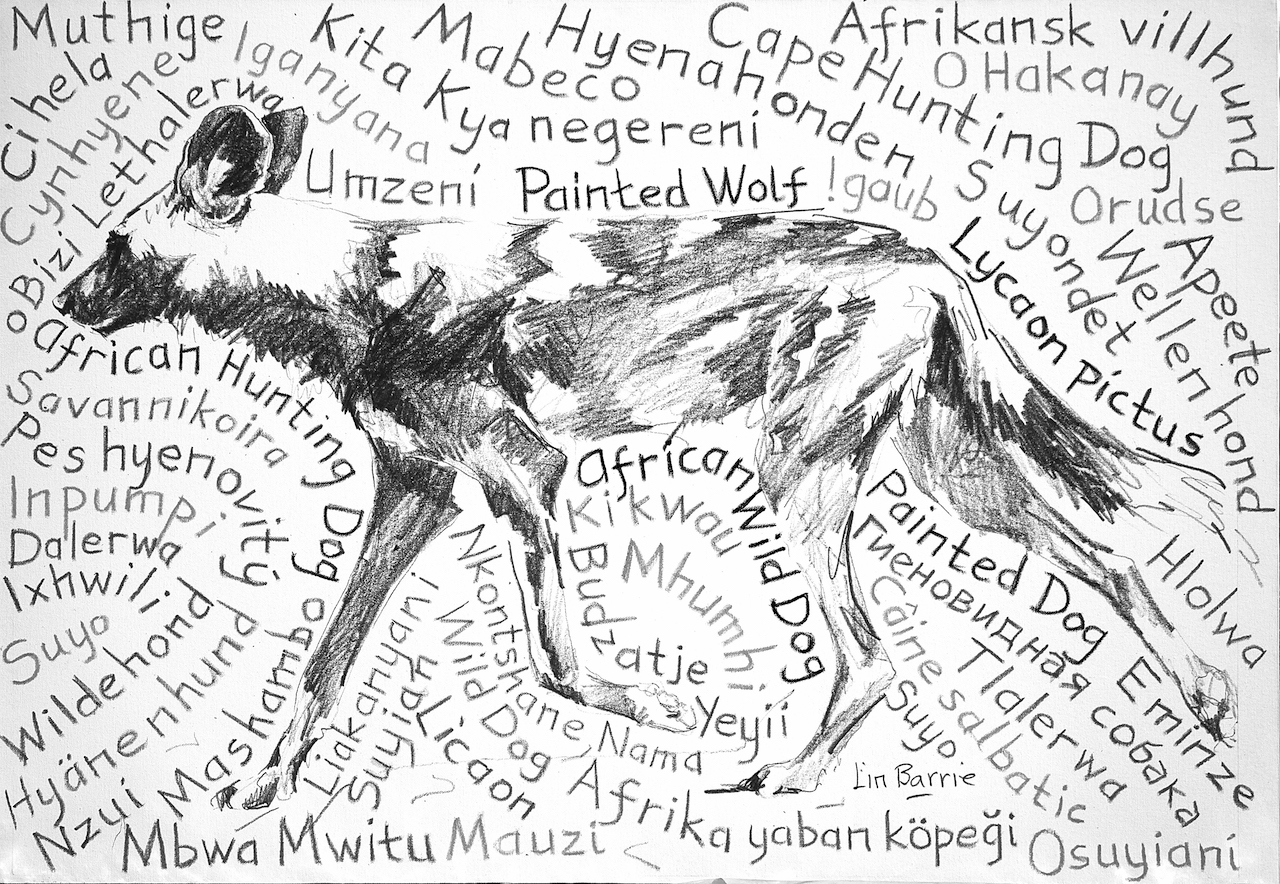 Muthige
Iganyana
Kita Kya negereni
Mabeco
Hyenahonden
Cape Hunting Dog
Afrikansk villhund
O Hakanay
Cihela
Cynhyene
oBizi Lethalerwa
Umzeni
Painted Wolf
!gaub
Suyondet
Orudse
Apeete
Wellenhond
Lycaon pictus
African Hunting Dog
Savannikoira
Pes hyenovity
Inpumpi
Dalerwa
Ixhwili
Suyo
Wildehond
Hyänenhund
Nzui
Mashambo
African Wild Dog
Kikwau
Mhumhi
Budzatje
Yeyii
Nkontshane
Nama
Wild Dog
Liakanyani
Suyian
Licaon
Painted Dog
Гиеновидная собака
Câine salbatic
Tlalerwa
Suyo
Hlolwa
Eminze
Lin Barrie
Mbwa Mwitu
Mauzi
Afrika yaban köpeği
Osuyiani